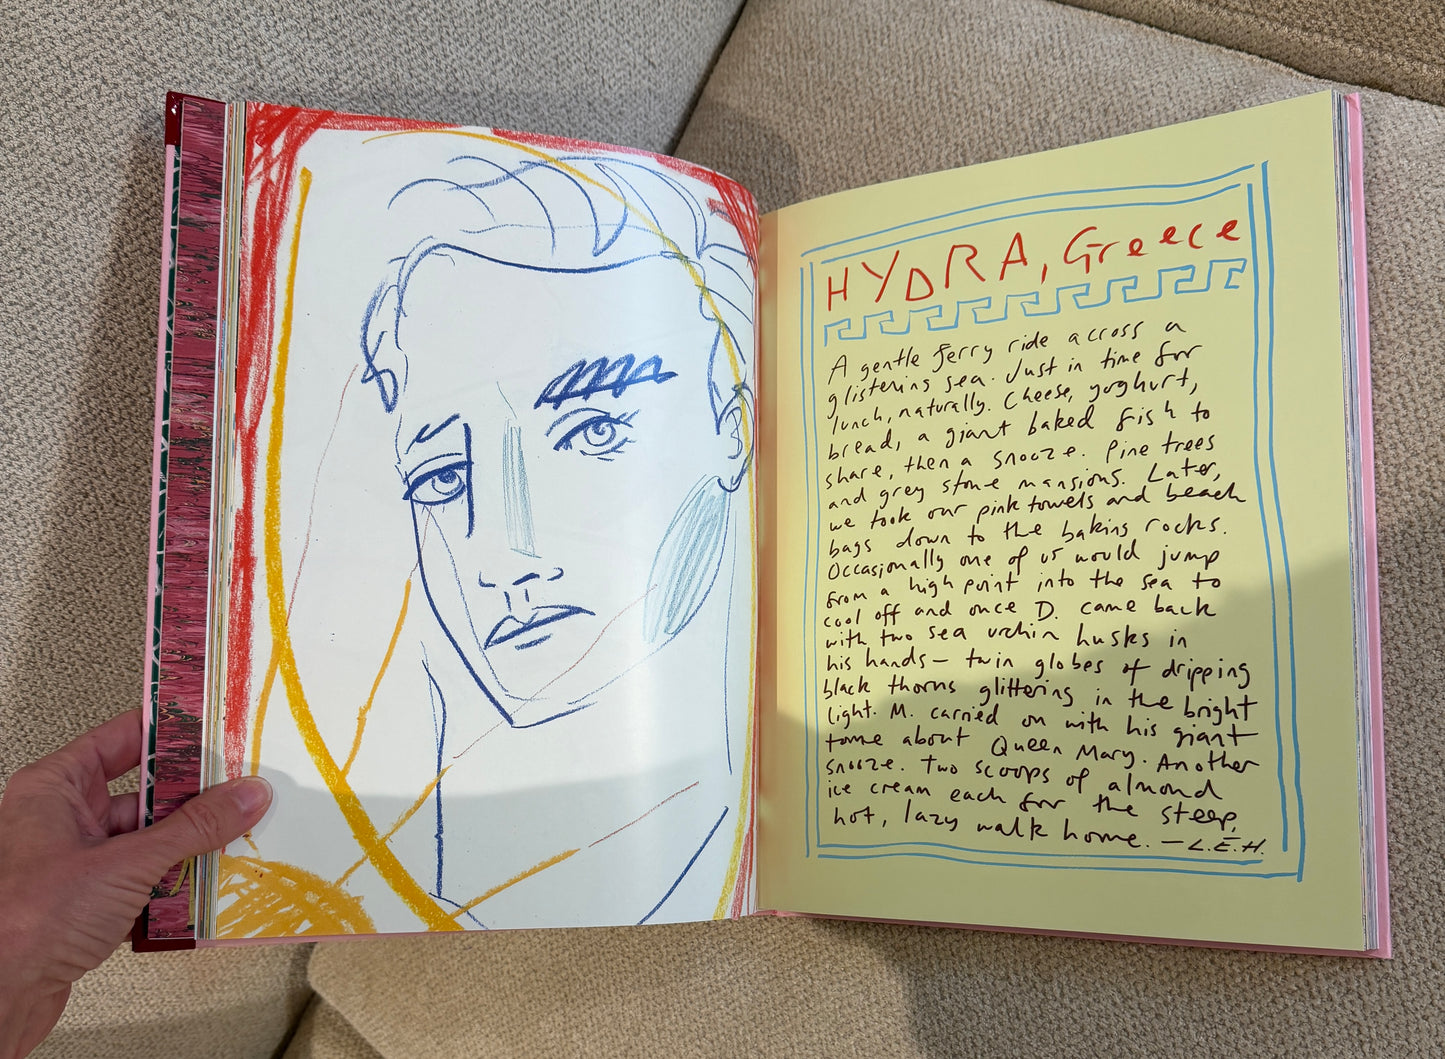 HYDRA, Greece
A gentle ferry ride across a
glistering sea. Just in time for
lunch, naturally. Cheese, yoghurt,
bread, a giant baked fish to
share, then a snooze. Pine trees
and grey stone mansions. Later,
we took our pink towels and beach
bags down to the baking rocks.
Occasionally one of us would jump
from a high point into the sea to
cool off and once D. came back
with two sea urchin husks in
his hands — twin globes of dripping
black thorns glittering in the bright
light. M. carried on with his giant
tome about Queen Mary. Another
snooze. Two scoops of almond
ice cream each for the steep,
hot, lazy walk home. — L.E.H.